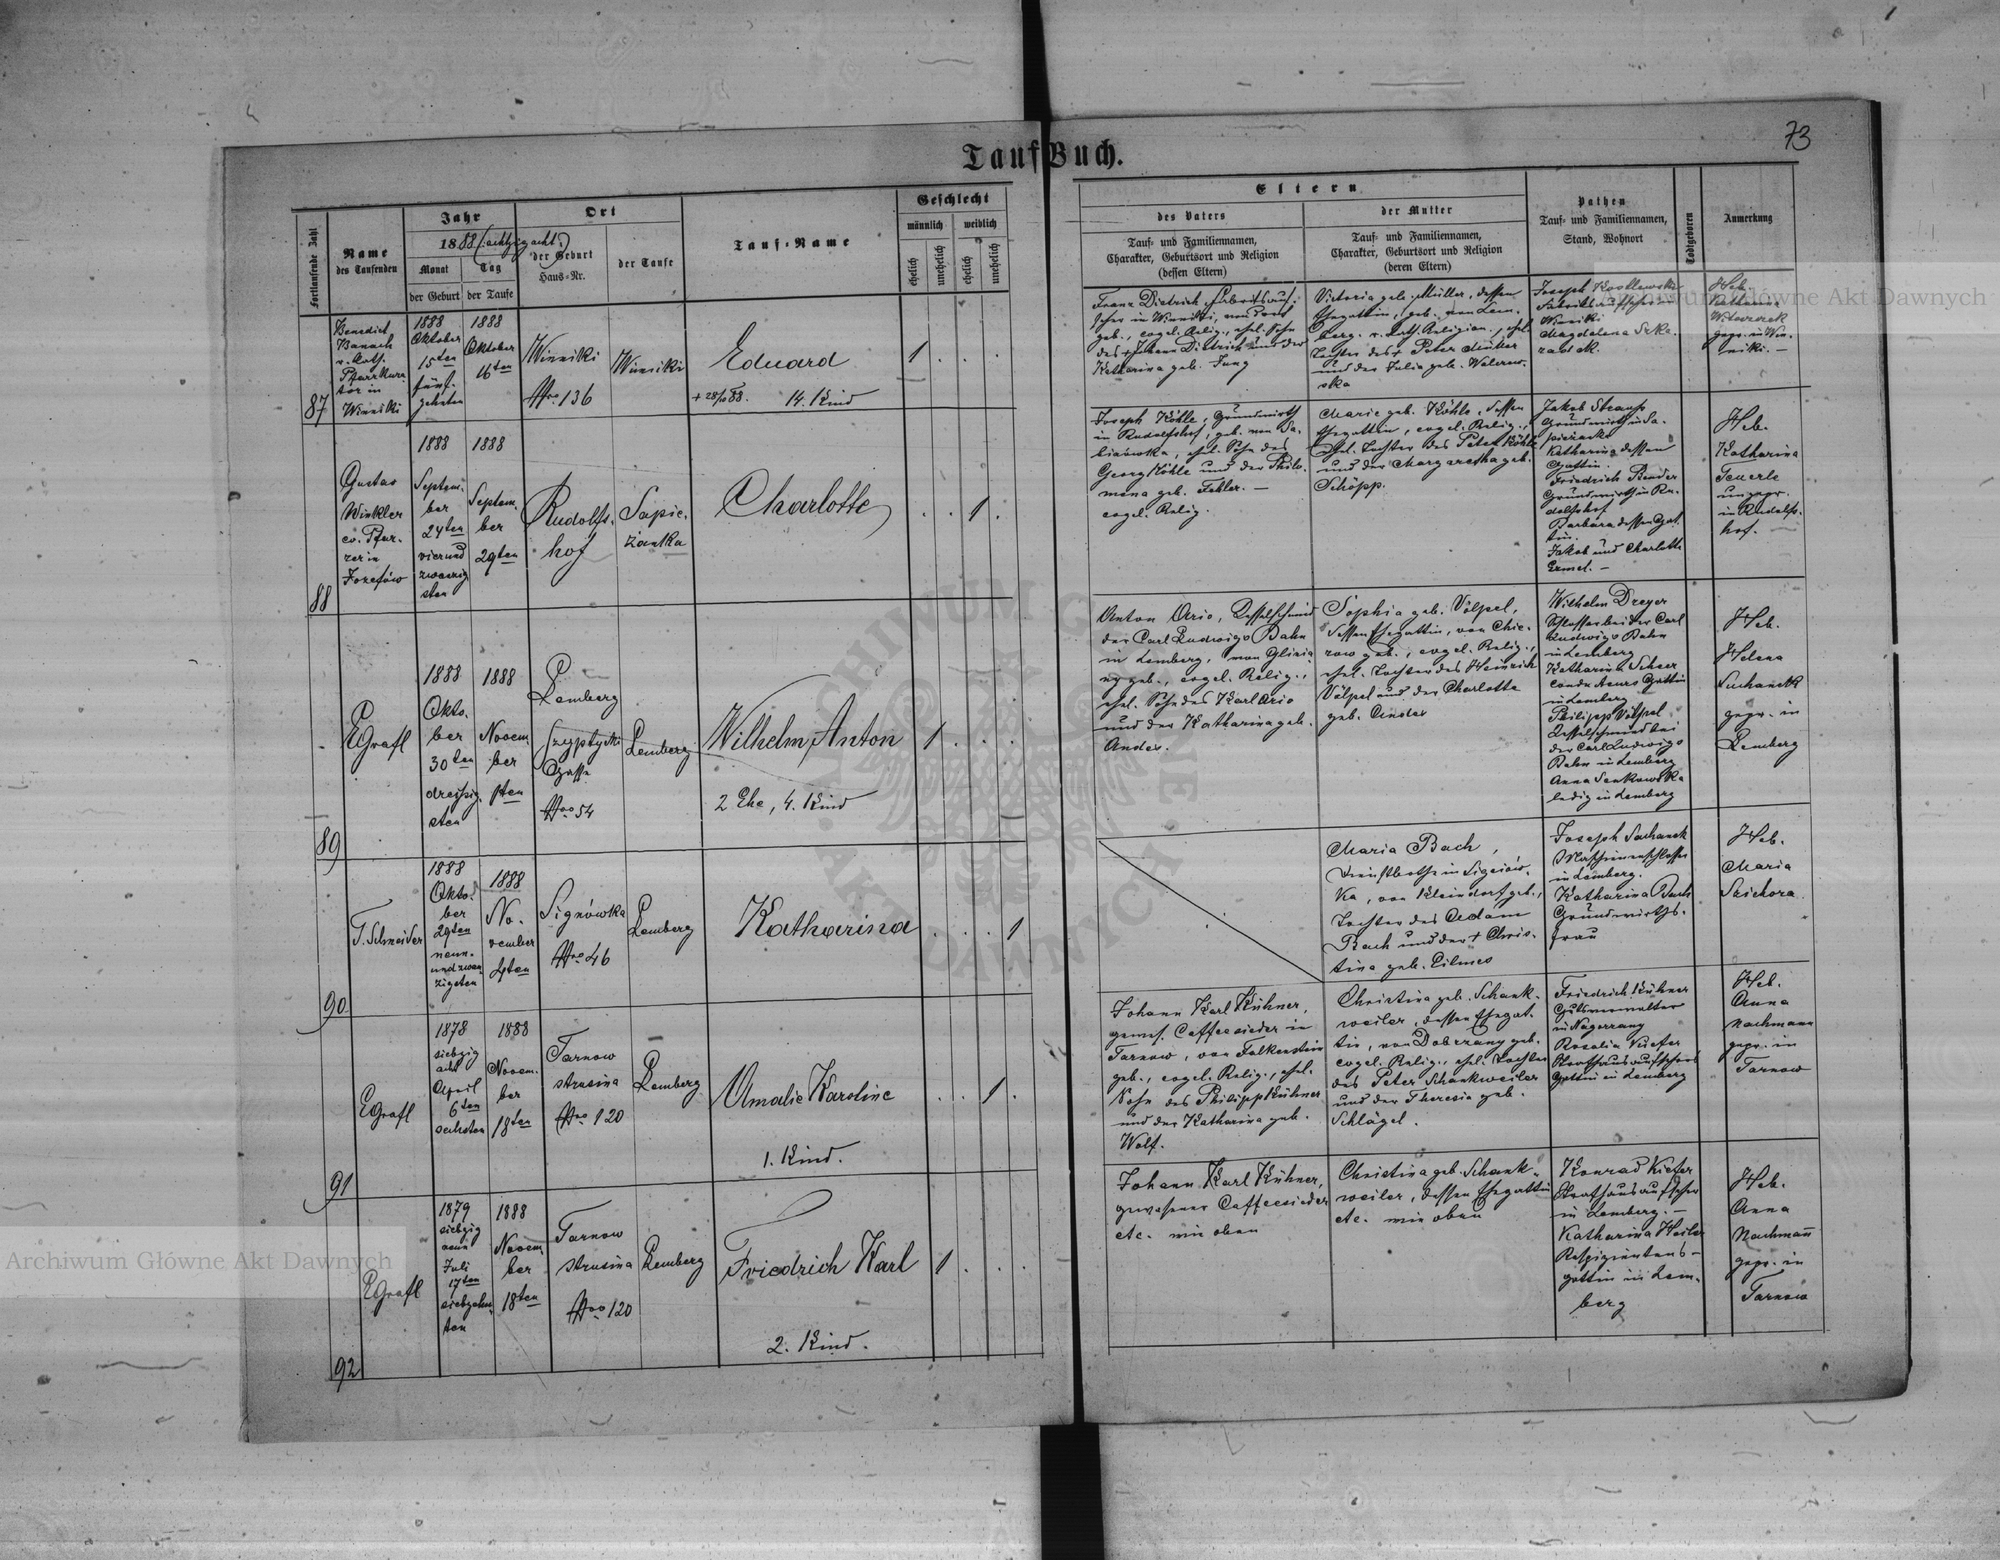 73
Tauf Buch.
Fortlaufende Zahl
Name
des Taufenden
Jahr
1888 (achtzigacht.)
Monat
Tag
der Geburt
der Taufe
Ort
der Geburt
Haus-Nr.
der Taufe
Tauf-Name
Geschlecht
männlich
weiblich
ehelich
unehelich
ehelich
unehelich
Eltern
des Vaters
Tauf- und Familiennamen,
Charakter, Geburtsort und Religion
(dessen Eltern)
der Mutter
Tauf- und Familiennamen,
Charakter, Geburtsort und Religion
(deren Eltern)
Pathen
Tauf- und Familiennamen,
Stand, Wohnort
Todtgeboren
Anmerkung
87
Benedict
Banach
r. kath.
Pfarrkura-
tor in
Winniki
1888
Oktober
15ten
fünf-
zehnten
1888
Oktober
16ten
Winniki
Nro 136
Winniki
Eduard
+ 28/10 88. 14. Kind
1
Franz Dietrich, Fabriksauf-
seher in Winniki, und dort
geb., evgel. Relig., ehel. Sohn
des + Johann Dietrich und der
Katharina geb. Jung
Victoria geb. Müller, dessen
Ehegattin, geb. von Lem-
berg, r. kath. Religion, ehel.
Tochter des + Peter Müller
und der Julia geb. Walerow-
ska
Joseph
Fabriksaufseher in
Winniki
Magdalena
Heb.
Katharina
gepr. in Win-
niki. —
88
Gustav
Winkler
ev. Pfar-
rer in
Jozefów
1888
Septem-
ber
24ten
vierund
zwanzig
sten
1888
Septem-
ber
29ten
Rudolfs-
hof
Sapie-
żanka
Charlotte
1
Joseph Köhle, Grundwirth
in Rudolfshof, geb. von Sa-
, ehel. Sohn des
Georg Köhle und der Philo-
mena geb. Fehler. —
evgel. Relig.
Marie geb. Köhle, dessen
Ehegattin, evgel. Relig.,
ehel. Tochter des Peter Köhle
und der Margaretha geb.
Schöpp.
Jakob Strauss
Grundwirth in Sa-
pieżanka
Katharina dessen
Gattin.
Friedrich Bender
Grundwirth in Ru-
dolfshof
Barbara dessen Gat-
tin.
Jakob und Charlotte
Ermel. —
Heb.
Katharina
Feuerle
ungepr.
in Rudolfs-
hof. —
89
EGrafl
1888
Okto-
ber
30ten
dreissig-
sten
1888
Novem-
ber
1ten
Lemberg
Szeptycki
Gasse
Nro 54
Lemberg
Wilhelm Anton
2 Ehe, 4. Kind
1
Anton Ario, Kesselschmied
der Carl Ludwigs Bahn
in Lemberg, von Glinia-
ny geb., evgel. Relig.,
ehel. Sohn des Karl Ario
und der Katharina geb.
Andes.
Sophia geb. Völpel,
dessen Ehegattin, von Chie-
row geb., evgel. Relig.,
ehel. Tochter des Heinrich
Völpel und der Charlotte
geb. Andes
Wilhelm Dreyer
Schlossarbeiter Carl
Ludwigs Bahn
in Lemberg
Katharina Scheer
Conducteurs Gattin
in Lemberg
Philipp Völpel
Kesselschmied bei
der Carl Ludwigs
Bahn in Lemberg
Anna Senkowska
ledig in Lemberg
Heb.
Helena
Suchanek
gepr. in
Lemberg
90
T. Schneider
1888
Okto-
ber
29ten
neun-
und zwan-
zigsten
1888
No-
vember
4ten
Signówka
Nro 46
Lemberg
Katharina
1
Maria Bach,
Dienstbothe in Signiów-
ka, von Kleindorf geb.,
Tochter des Adam
Bach und der + Chris-
tina geb. Cilmes
Joseph Suchanek
Maschinenschlosser
in Lemberg.
Katharina Bach
Grundwirths-
frau
Heb.
Maria
Szichora
91
EGrafl
1878
siebzig
acht
April
6ten
sechsten
1888
Novem-
ber
18ten
Tarnow
strusina
Nro 120
Lemberg
Amalie Karoline
1. Kind.
1
Johann Karl Kühner,
gewes. Caffeesieder in
Tarnow, von Falkenstein
geb., evgel. Relig., ehel.
Sohn des Philipp Kühner
und der Katharina geb.
Wolf.
Christina geb. Schank-
weiler, dessen Ehegat-
tin, von Dobrzanz geb.
evgel. Relig., ehel. Tochter
des Peter Schankweiler
und der Theresia geb.
Schlägel.
Friedrich Kühner
Gutsverwalter
in Nagorzany
Rosalia Kiefer
Strafhausaufsehers
Gattin in Lemberg
Heb.
Anna
Nachmann
gepr. in
Tarnow
92
EGrafl
1879
siebzig
neun
Juli
17ten
siebzehn-
ten
1888
Novem-
ber
18ten
Tarnow
strusina
Nro 120
Lemberg
Friedrich Karl
2. Kind.
1
Johann Karl Kühner,
gewesener Caffeesieder
etc. wie oben
Christina geb. Schank-
weiler, dessen Ehegattin
etc. wie oben
Konrad Kiefer
Strafhausaufseher
in Lemberg. —
Katharina Heiler
Respizientens-
gattin in Lem-
berg
Heb.
Anna
Nachmann
gepr. in
Tarnow
Archiwum Główne Akt Dawnych
Archiwum Główne Akt Dawnych
ARCHIWUM GŁÓWNE AKT DAWNYCH